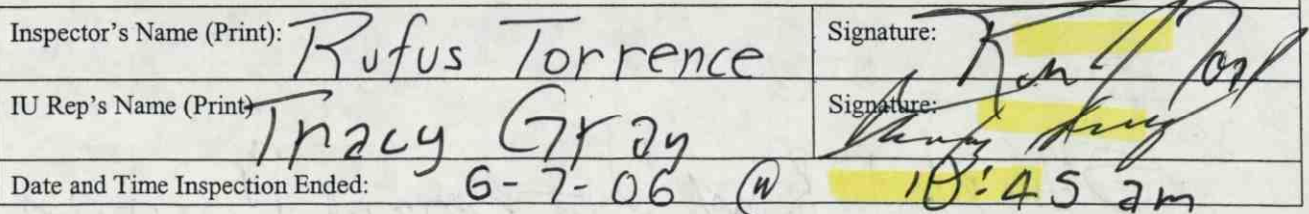 Inspector's Name (Print): Rufus Torrence Signature:
IU Rep's Name (Print) Tracy Gray Signature:
Date and Time Inspection Ended: 6-7-06 @ 10:45 am